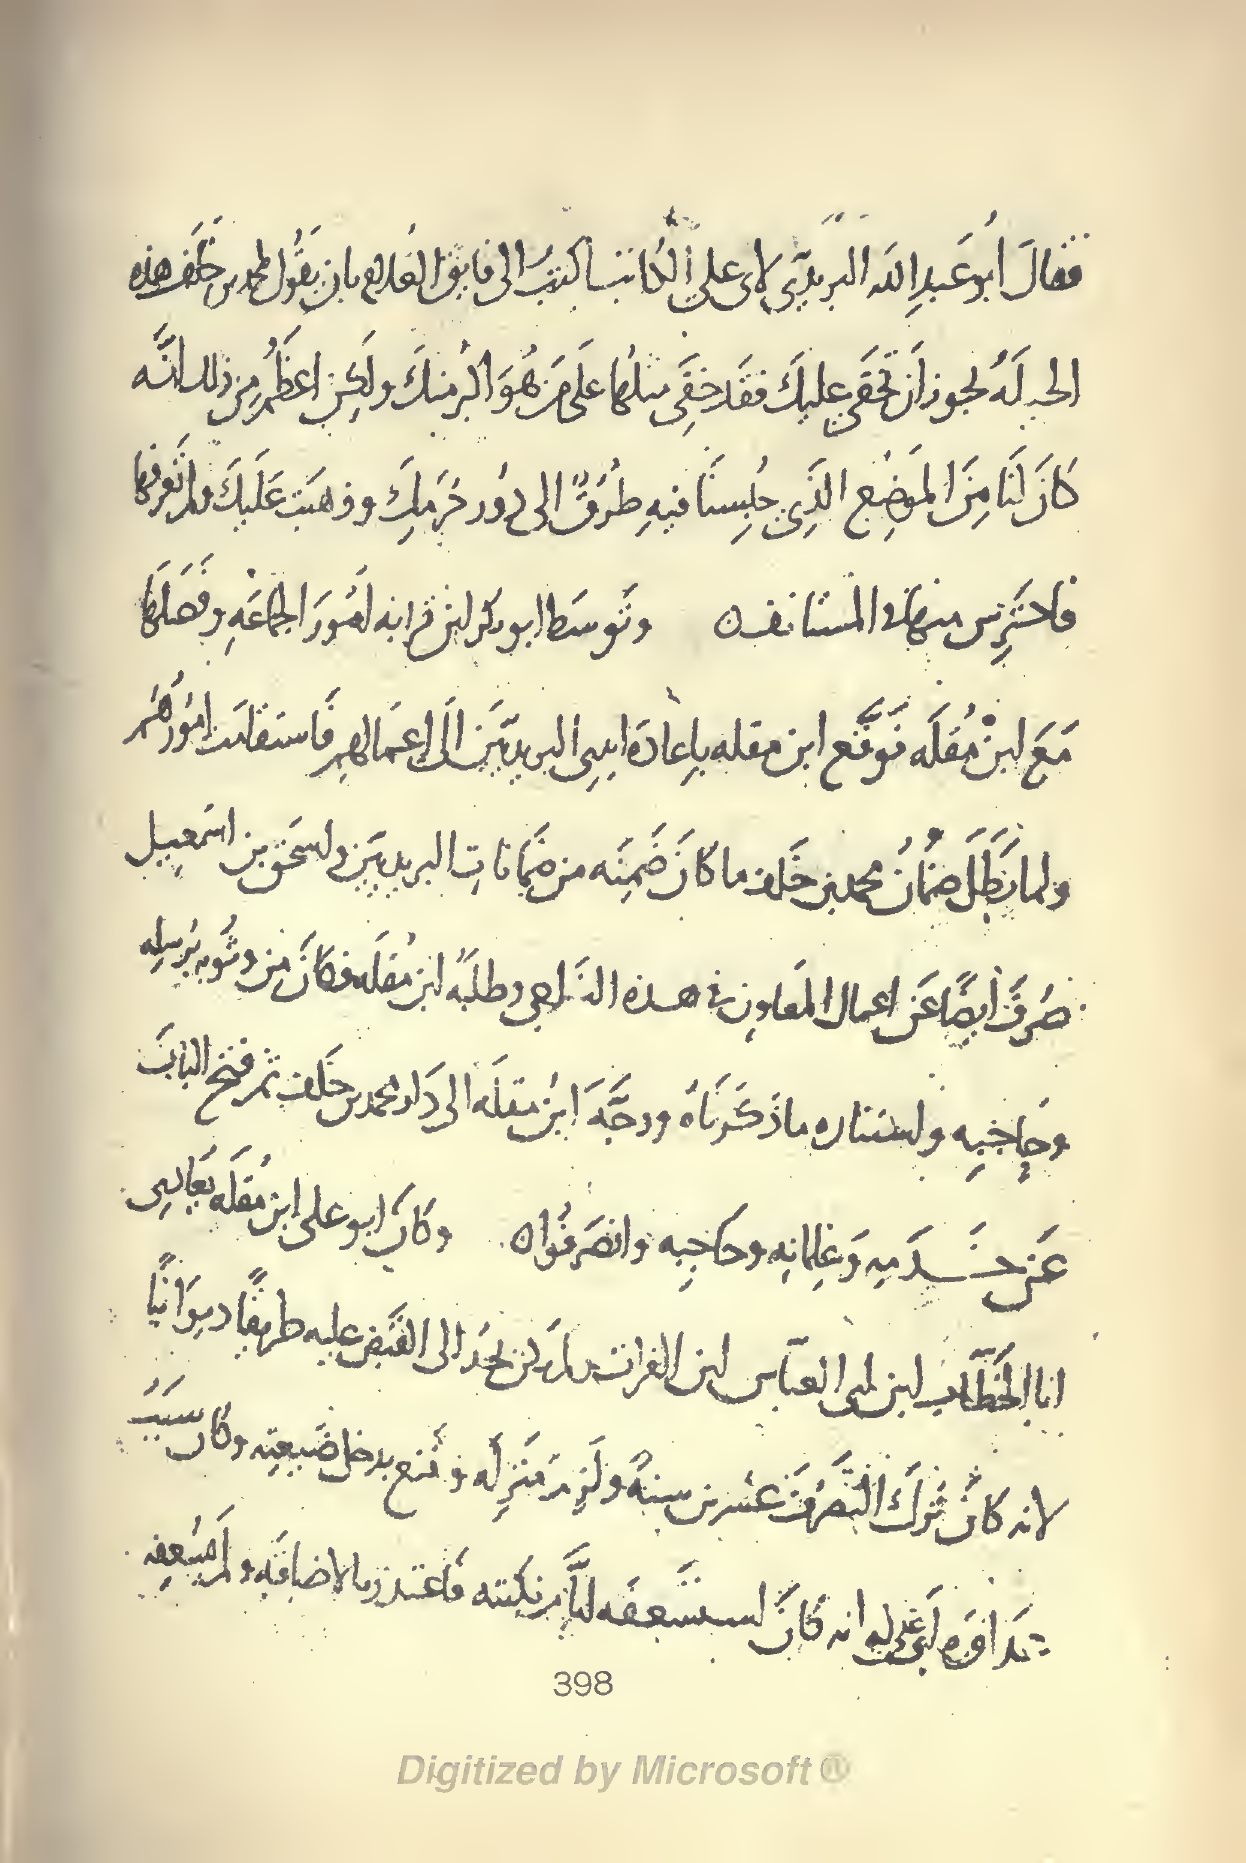 فقالَ أبو عَبدِ الله البريديّ لابى علي الكاتب اكتبُ الى فايق الغلام بان يقول لمحمد بن خلف هذه
الحيلَه يجوز أن تخفى عليكَ فقد خفى مثلها على مَن هُوَ اكبر منكَ ولكِن اعظَمُ مِن ذلك انّه
كانَ لنا مِنَ المَوضِع الذَي حُبِسنا فيهِ طُرُقٌ الى دُور حُرَمِكَ وذهبَت عَلَيكَ ولم تعرفها
فاحترِس منها في المستانف ٥ وتوسَط ابو بكر ابن قرابه امُورَ الجماعَهِ وفصَلَها
مَعَ ابن مُقلَه فوقّع ابن مقله باِعادَه اسبى البريديّين الَى اعمَالهِم فاستقامت امُورهُم
ولما بَطَلَ ضمانُ محمد بن خلف ما كانَ ضَمِنَه من ضَمانات البريديين واسحَق بن اسمعيل
صُرفَ أيضًا عَن اعمال المَعاون في هذه النَواحى وطلبَه ابن مُقلَه فكانَ من وثُوبه برُسله
وحاجِبِه واستتاره ما ذكَرناهُ ووجّهَ ابنُ مقلَه الى دَار محمد بن خَلف ثم فتح البابَ
عَن خدَمِه وَغِلمانِه وحاجِبِه وانصَرفُوا ٥ وكانَ ابو على ابن مُقلَه يُعادى
ابا الخطّاب ابن ابى العبّاس ابن الفرات ولم يكن يجد الى القبَض عليه طريقًا ديوانيًا
لانه كانَ تركَ التصَرُفَ عشرين سنهً ولَزِمَ مَنزِله وقنع بدخل ضَيعِته وكانَ سَبَبُ
انه كانَ استسعفَه ايّام نكبته فاعتذر بالاضافَه ولم يُسعِفه
398
Digitized by Microsoft ®